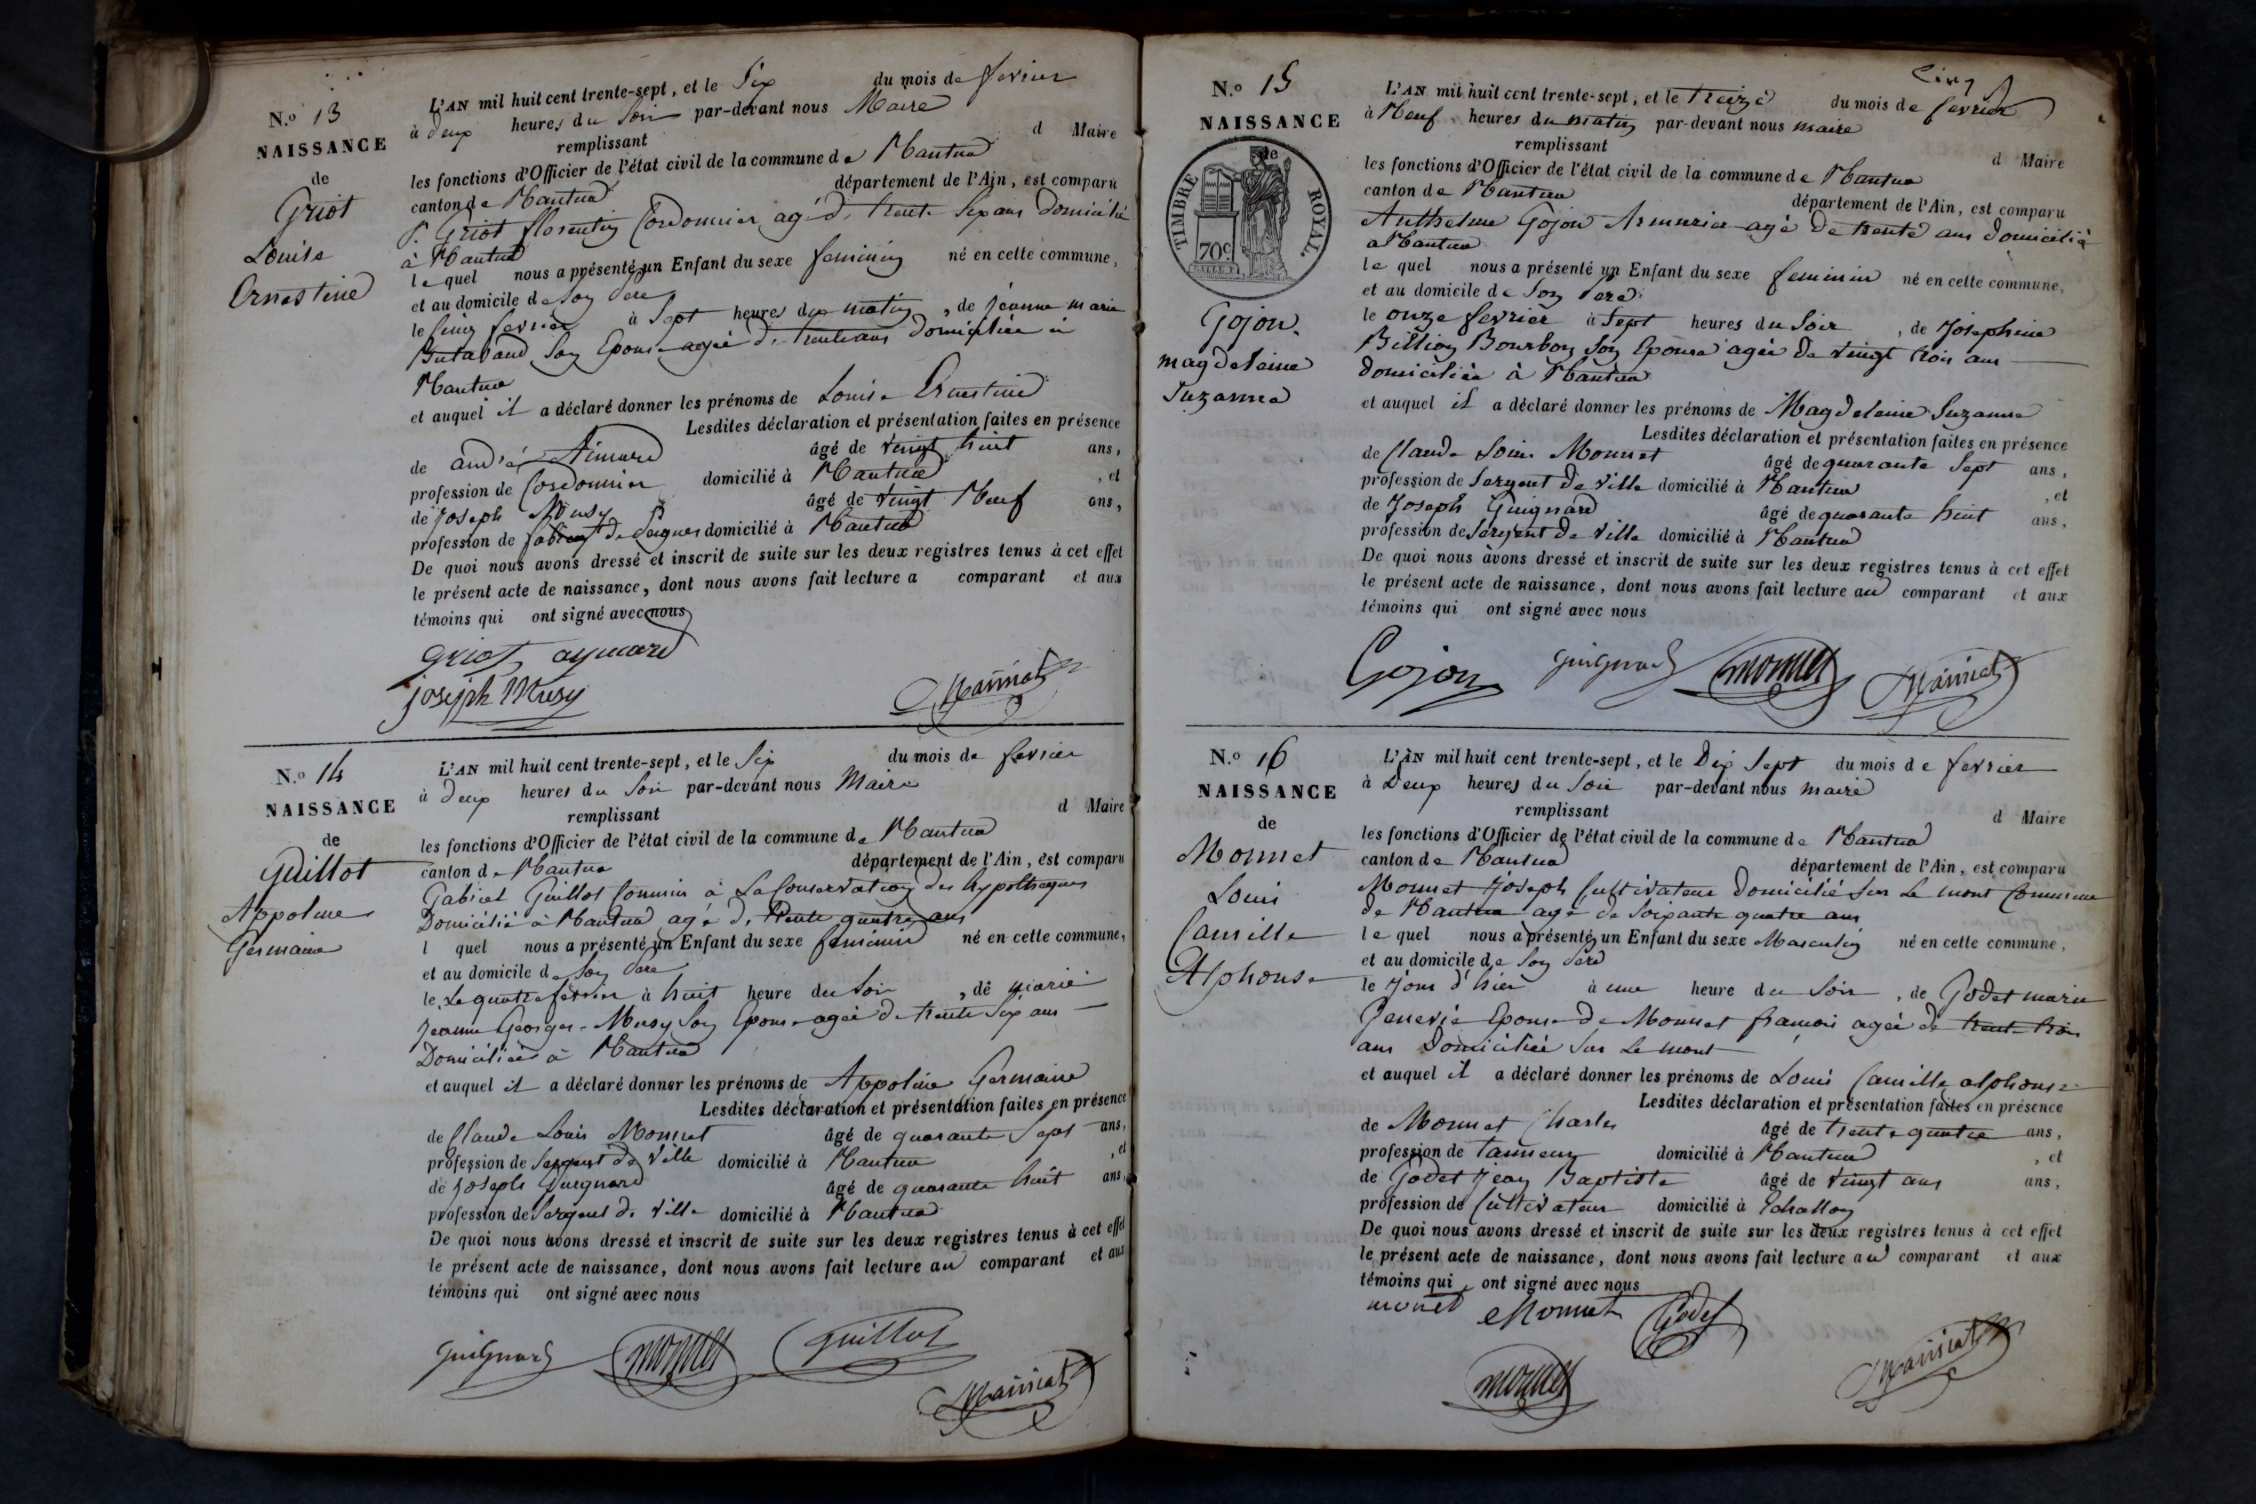 N.º 13
NAISSANCE
de
Griot
Louise
Ernestine
L'AN mil huit cent trente-sept, et le Six du mois de fevrier
à deux heures du Soir par-devant nous Maire
remplissant d Maire
les fonctions d'Officier de l'état civil de la commune de Nantua
canton de Nantua département de l'Ain, est comparu
Griot florentin Cordonnier agé de trente Six ans domicilié
à Nantua
le quel nous a présenté un Enfant du sexe feminin né en cette commune,
et au domicile de Son Père
le Cinq fevrier à Sept heures du matin, de jeanne marie
Butavand Son Epouse agée de trente ans domiciliée à
Nantua
et auquel il a déclaré donner les prénoms de Louise Ernestine
Lesdites déclaration et présentation faites en présence
de andré Aimard âgé de vingt huit ans,
profession de Cordonnier domicilié à Nantua, et
de Joseph Musy âgé de vingt Neuf ans,
profession de fabricant de Peignes domicilié à Nantua
De quoi nous avons dressé et inscrit de suite sur les deux registres tenus à cet effet
le présent acte de naissance, dont nous avons fait lecture a comparant et aux
témoins qui ont signé avec nous
griot aymard
joseph Musy
N.º 14
NAISSANCE
de
Guillot
Appoline
Germaine
L'AN mil huit cent trente-sept, et le Six du mois de fevrier
à deux heures du Soir par-devant nous Maire
remplissant d Maire
les fonctions d'Officier de l'état civil de la commune de Nantua
canton de Nantua département de l'Ain, est comparu
Gabriel Guillot Commis à La Conservation des hypothèques
Domicilié à Nantua agé de Trente quatre ans
l quel nous a présenté un Enfant du sexe feminin né en cette commune,
et au domicile de Son Père
le Le quatre fevrier à huit heure du Soir, de marie
jeanne Georges-Musy Son Epouse agée de trente Six ans
Domiciliée à Nantua
et auquel il a déclaré donner les prénoms de Appoline Germaine
Lesdites déclaration et présentation faites en présence
de Claude Louis Monnet âgé de quarante Sept ans,
profession de Sergent de Ville domicilié à Nantua, et
de Joseph Guignard âgé de quarante huit ans,
profession de Sergent de Ville domicilié à Nantua
De quoi nous avons dressé et inscrit de suite sur les deux registres tenus à cet effet
le présent acte de naissance, dont nous avons fait lecture au comparant et aux
témoins qui ont signé avec nous
Guignard monnet Guillot
N.º 15
NAISSANCE
de
TIMBRE ROYAL.
70c
Gojon
magdelaine
Suzanne
Cinq
L'AN mil huit cent trente-sept, et le treize du mois de fevrier
à Neuf heures du matin par-devant nous maire
remplissant d Maire
les fonctions d'Officier de l'état civil de la commune de Nantua
canton de Nantua département de l'Ain, est comparu
Anthelme Gojon Armurier agé De trente ans domicilié
a Nantua
le quel nous a présenté un Enfant du sexe feminin né en cette commune,
et au domicile de Son Père
le onze fevrier à Sept heures du Soir, de Josephine
Billion Bourbon Son Epouse agée De vingt trois ans
domiciliée à Nantua
et auquel il a déclaré donner les prénoms de Magdelaine Suzanne
Lesdites déclaration et présentation faites en présence
de Claude Louis Monnet âgé de quarante Sept ans,
profession de Sergent de Ville domicilié à Nantua, et
de Joseph Guignard âgé de quarante huit ans,
profession de Sergent de Ville domicilié à Nantua
De quoi nous avons dressé et inscrit de suite sur les deux registres tenus à cet effet
le présent acte de naissance, dont nous avons fait lecture au comparant et aux
témoins qui ont signé avec nous
Gojon Guignard monnet
N.º 16
NAISSANCE
de
Monnet
Louis
Camille
Alphonse
L'AN mil huit cent trente-sept, et le Dix Sept du mois de fevrier
à Deux heures du Soir par-devant nous maire
remplissant d Maire
les fonctions d'Officier de l'état civil de la commune de Nantua
canton de Nantua département de l'Ain, est comparu
Monnet Joseph Cultivateur Domicilié Sur Le mont Commune
de Nantua agé de Soixante quatre ans
le quel nous a présenté un Enfant du sexe Masculin né en cette commune,
et au domicile de Son Père
le Jour d'hier à une heure du Soir, de Godet marie
Genevie Epouse de Monnet françois agée de trente trois
ans Domiciliée Sur Le mont
et auquel il a déclaré donner les prénoms de Louis Camille alphonse
Lesdites déclaration et présentation faites en présence
de Monnet Charles âgé de trente quatre ans,
profession de Tanneur domicilié à Nantua, et
de Godet Jean Baptiste âgé de vingt ans ans,
profession de Cultivateur domicilié à Echallon
De quoi nous avons dressé et inscrit de suite sur les deux registres tenus à cet effet
le présent acte de naissance, dont nous avons fait lecture au comparant et aux
témoins qui ont signé avec nous
monet Godet
monnet